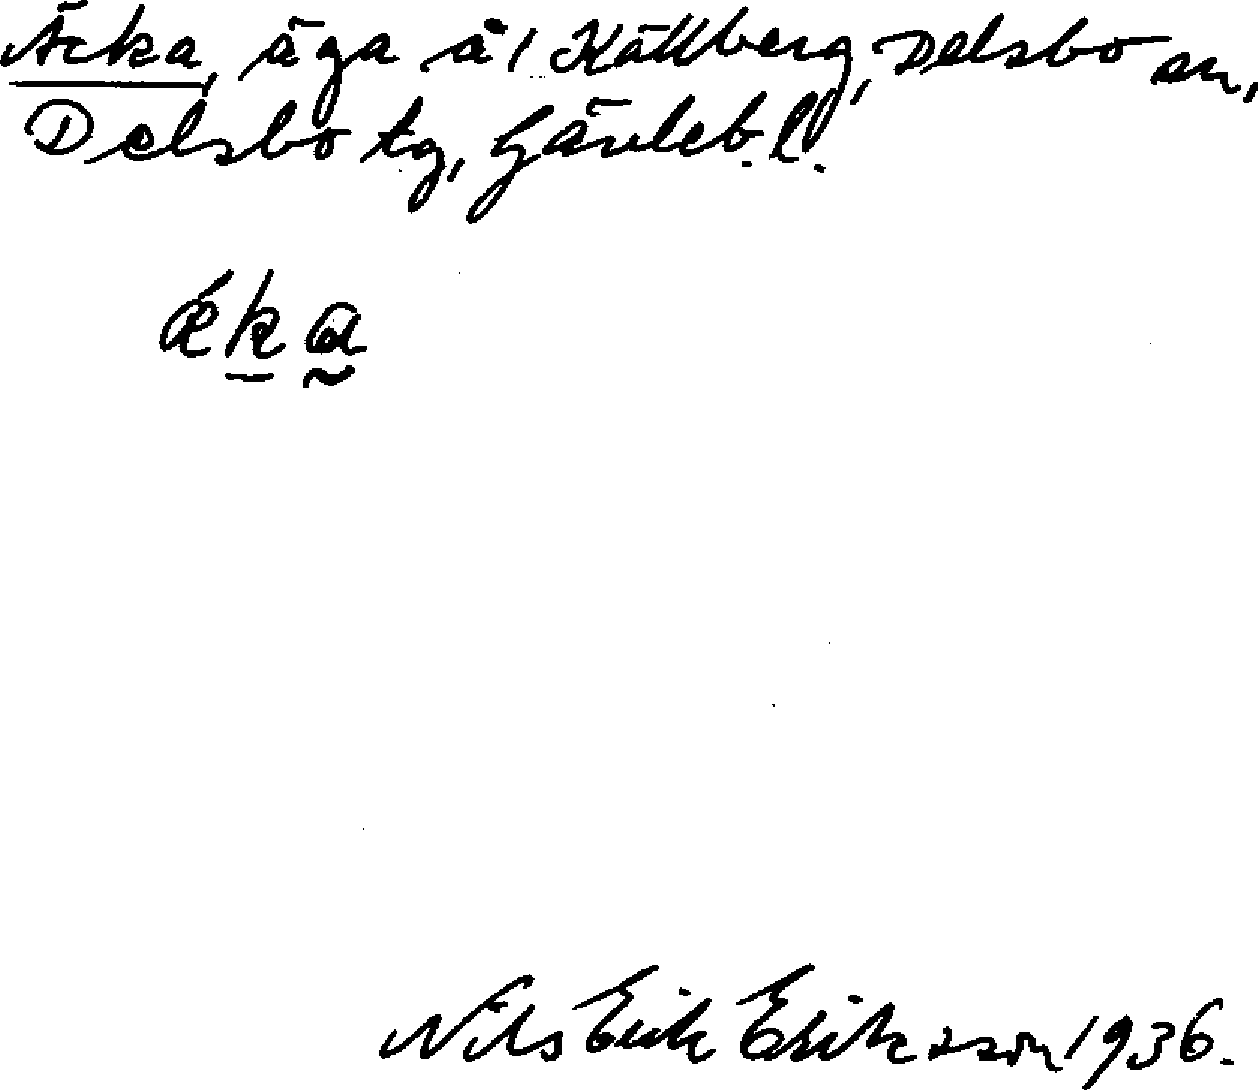 Äcka, äga å 1 Källberg, Delsbo sn,
Delsbo tg, Gävleb. l.
ǽka
Nils Erik Eriksson 1936.